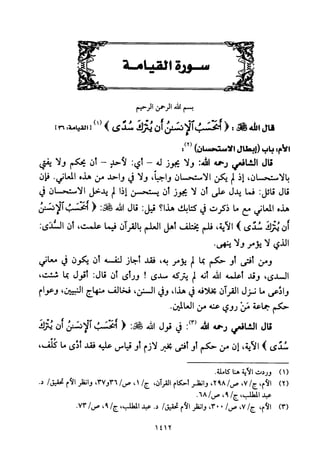 سورة القيامة
بسم الله الرحمن الرحيم
قال الله ﷻ: ﴿ أَيَحْسَبُ الْإِنسَنُ أَن يُتْرَكَ سُدًى ﴾ (١) [القيامة: ٣٦]
الأم: باب (إبطال الاستحسان) (٢):
قال الشافعي رحمه الله: ولا يجوز له - أي: لأحدٍ - أن يحكم ولا يفتي
بالاستحسان، إذ لم يكن الاستحسان واجباً، ولا في واحد من هذه المعاني. فإن
قال قائل: فما يدل على أن لا يجوز أن يستحسن إذا لم يدخل الاستحسان في
هذه المعاني مع ما ذكرت في كتابك هذا؟ قيل: قال الله ﷻ: ﴿ أَيَحْسَبُ الْإِنسَنُ
أَن يُتْرَكَ سُدًى ﴾ الآية، فلم يختلف أهل العلم بالقرآن فيما علمت، أن السدى:
الذي لا يؤمر ولا ينهى.
ومن أفتى أو حكم بما لم يؤمر به، فقد أجاز لنفسه أن يكون في معاني
السدى، وقد أعلمه الله أنه لم يتركه سدى ! ورأى أن قال: أقول بما شئت،
وادّعى ما نزل القرآن بخلافه في هذا، وفي السنن، فخالف منهاج النبيين، وعوام
حكم جماعة مَنْ روي عنه من العالمين.
قال الشافعي رحمه الله (٣): في قول الله ﷻ: ﴿ أَيَحْسَبُ الْإِنسَنُ أَن يُتْرَكَ
سُدًى ﴾ الآية، إن من حكم أو أفتى بخبر لازم أو قياس عليه فقد أدّى ما كُلّف،
(١) وردت الآية هنا كاملة.
(٢) الأم، ج/ ٧، ص/ ٢٩٨، وانظر أحكام القرآن، ج/ ١، ص/ ٣٦ و٣٧، وانظر الأم تحقيق/ د.
عبد المطلب، ج/ ٩، ص/ ٦٨.
(٣) الأم، ج/ ٧، ص/ ٣٠٠، وانظر الأم تحقيق/ د. عبد المطلب، ج/ ٩، ص/ ٧٣.
١٤١٢